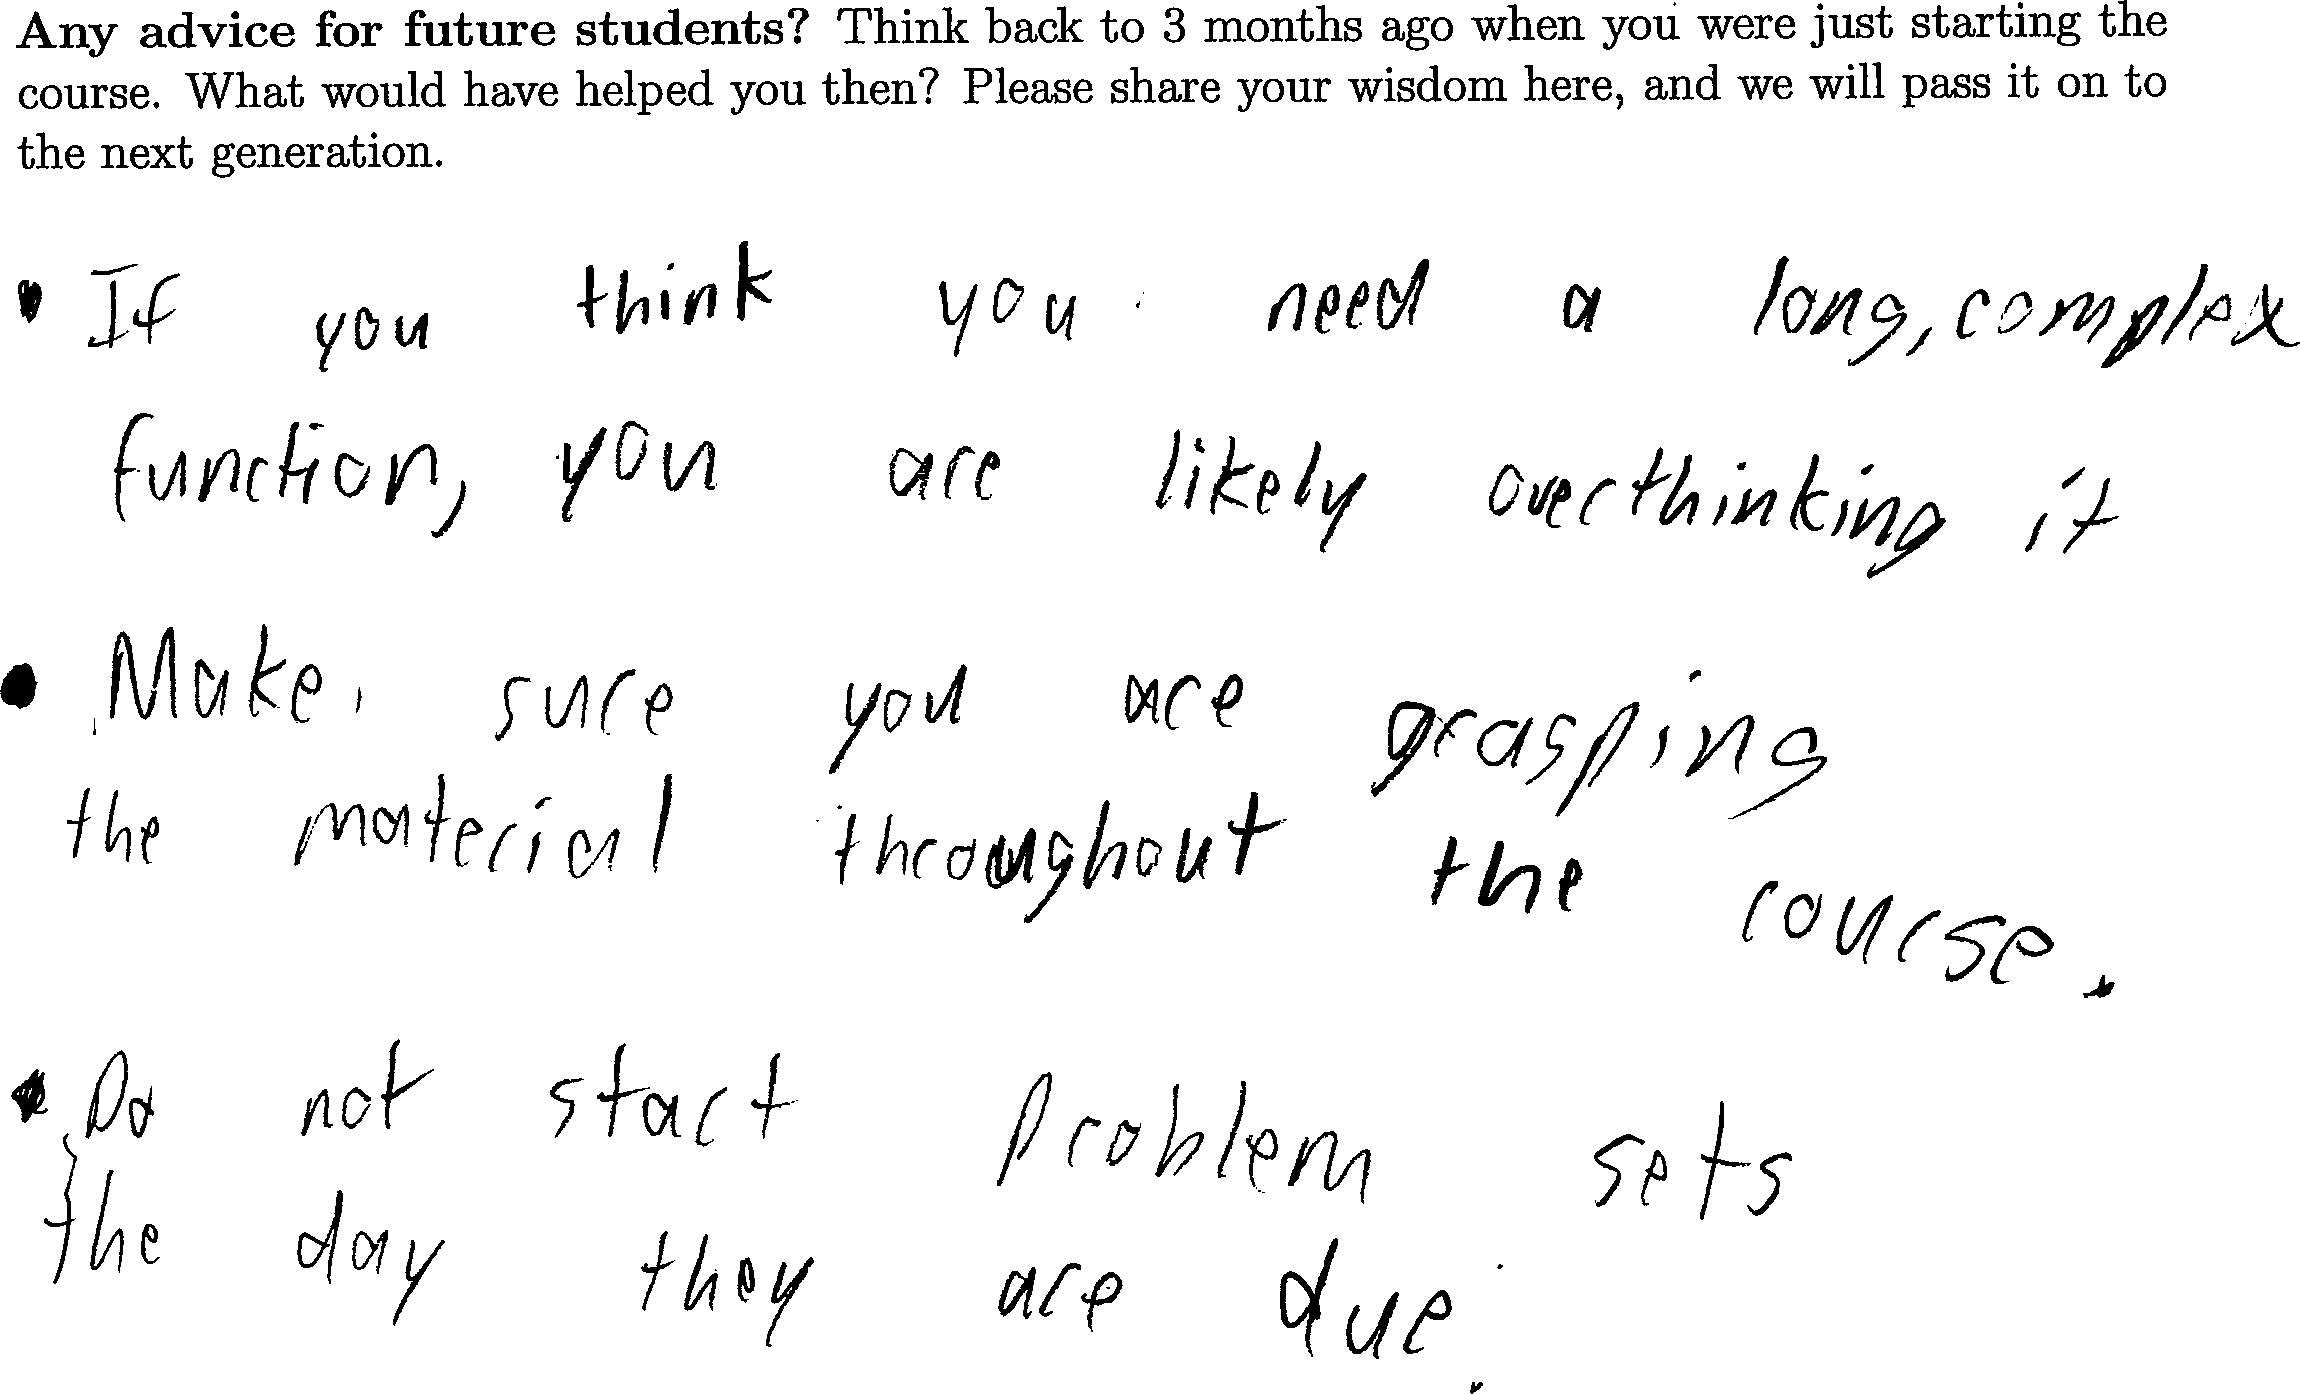 Any advice for future students? Think back to 3 months ago when you were just starting the
course. What would have helped you then? Please share your wisdom here, and we will pass it on to
the next generation.
• If you think you need a long, complex
function, you are likely overthinking it
• Make sure you are grasping
the material throughout the course.
• Do not start problem sets
the day they are due.